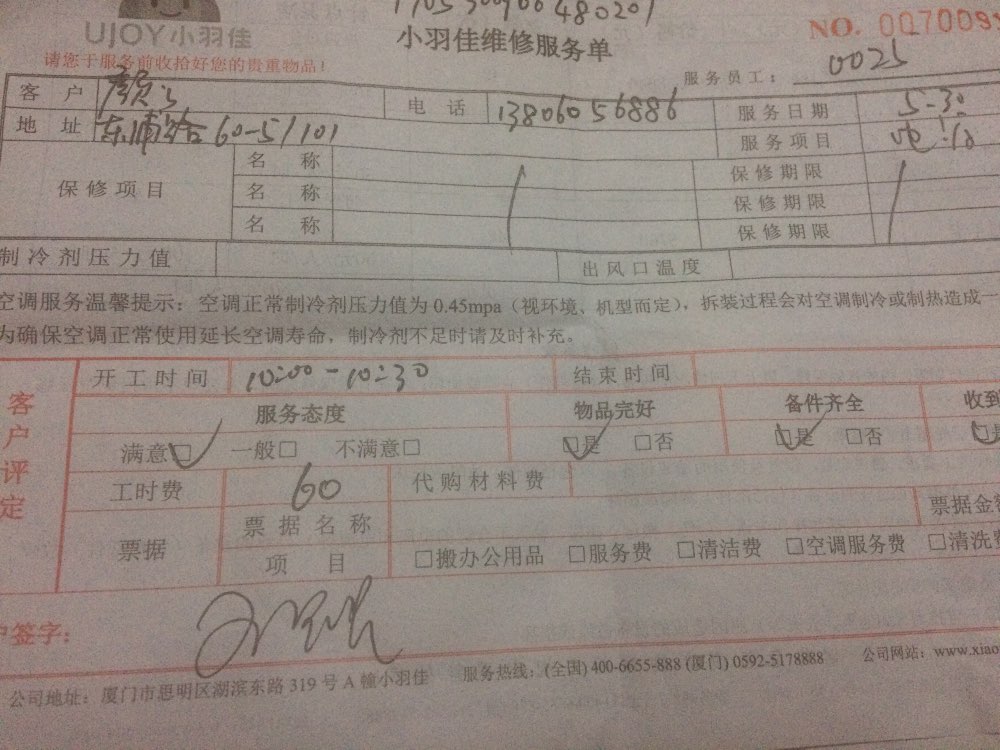 UJOY小羽佳
小羽佳维修服务单
NO. 007009
请您于服务前收拾好您的贵重物品！
服务员工： 0025
客户 电话 13806056886 服务日期 5-30
地址 60-5/101 服务项目
保修项目 名称 保修期限
名称 保修期限
名称 保修期限
制冷剂压力值 出风口温度
空调服务温馨提示：空调正常制冷剂压力值为 0.45mpa（视环境、机型而定），拆装过程会对空调制冷或制热造成一
为确保空调正常使用延长空调寿命，制冷剂不足时请及时补充。
客户评定
开工时间 10:00-10:30 结束时间
服务态度 物品完好 备件齐全 收到
满意□ 一般□ 不满意□ □是 □否 □是 □否 □是
工时费 60 代购材料费
票据 票据名称 票据金
项目 □搬办公用品 □服务费 □清洁费 □空调服务费 □清洗费
户签字：
公司地址：厦门市思明区湖滨东路 319 号 A 幢小羽佳 服务热线：(全国) 400-6655-888 (厦门) 0592-5178888 公司网站：www.xiao